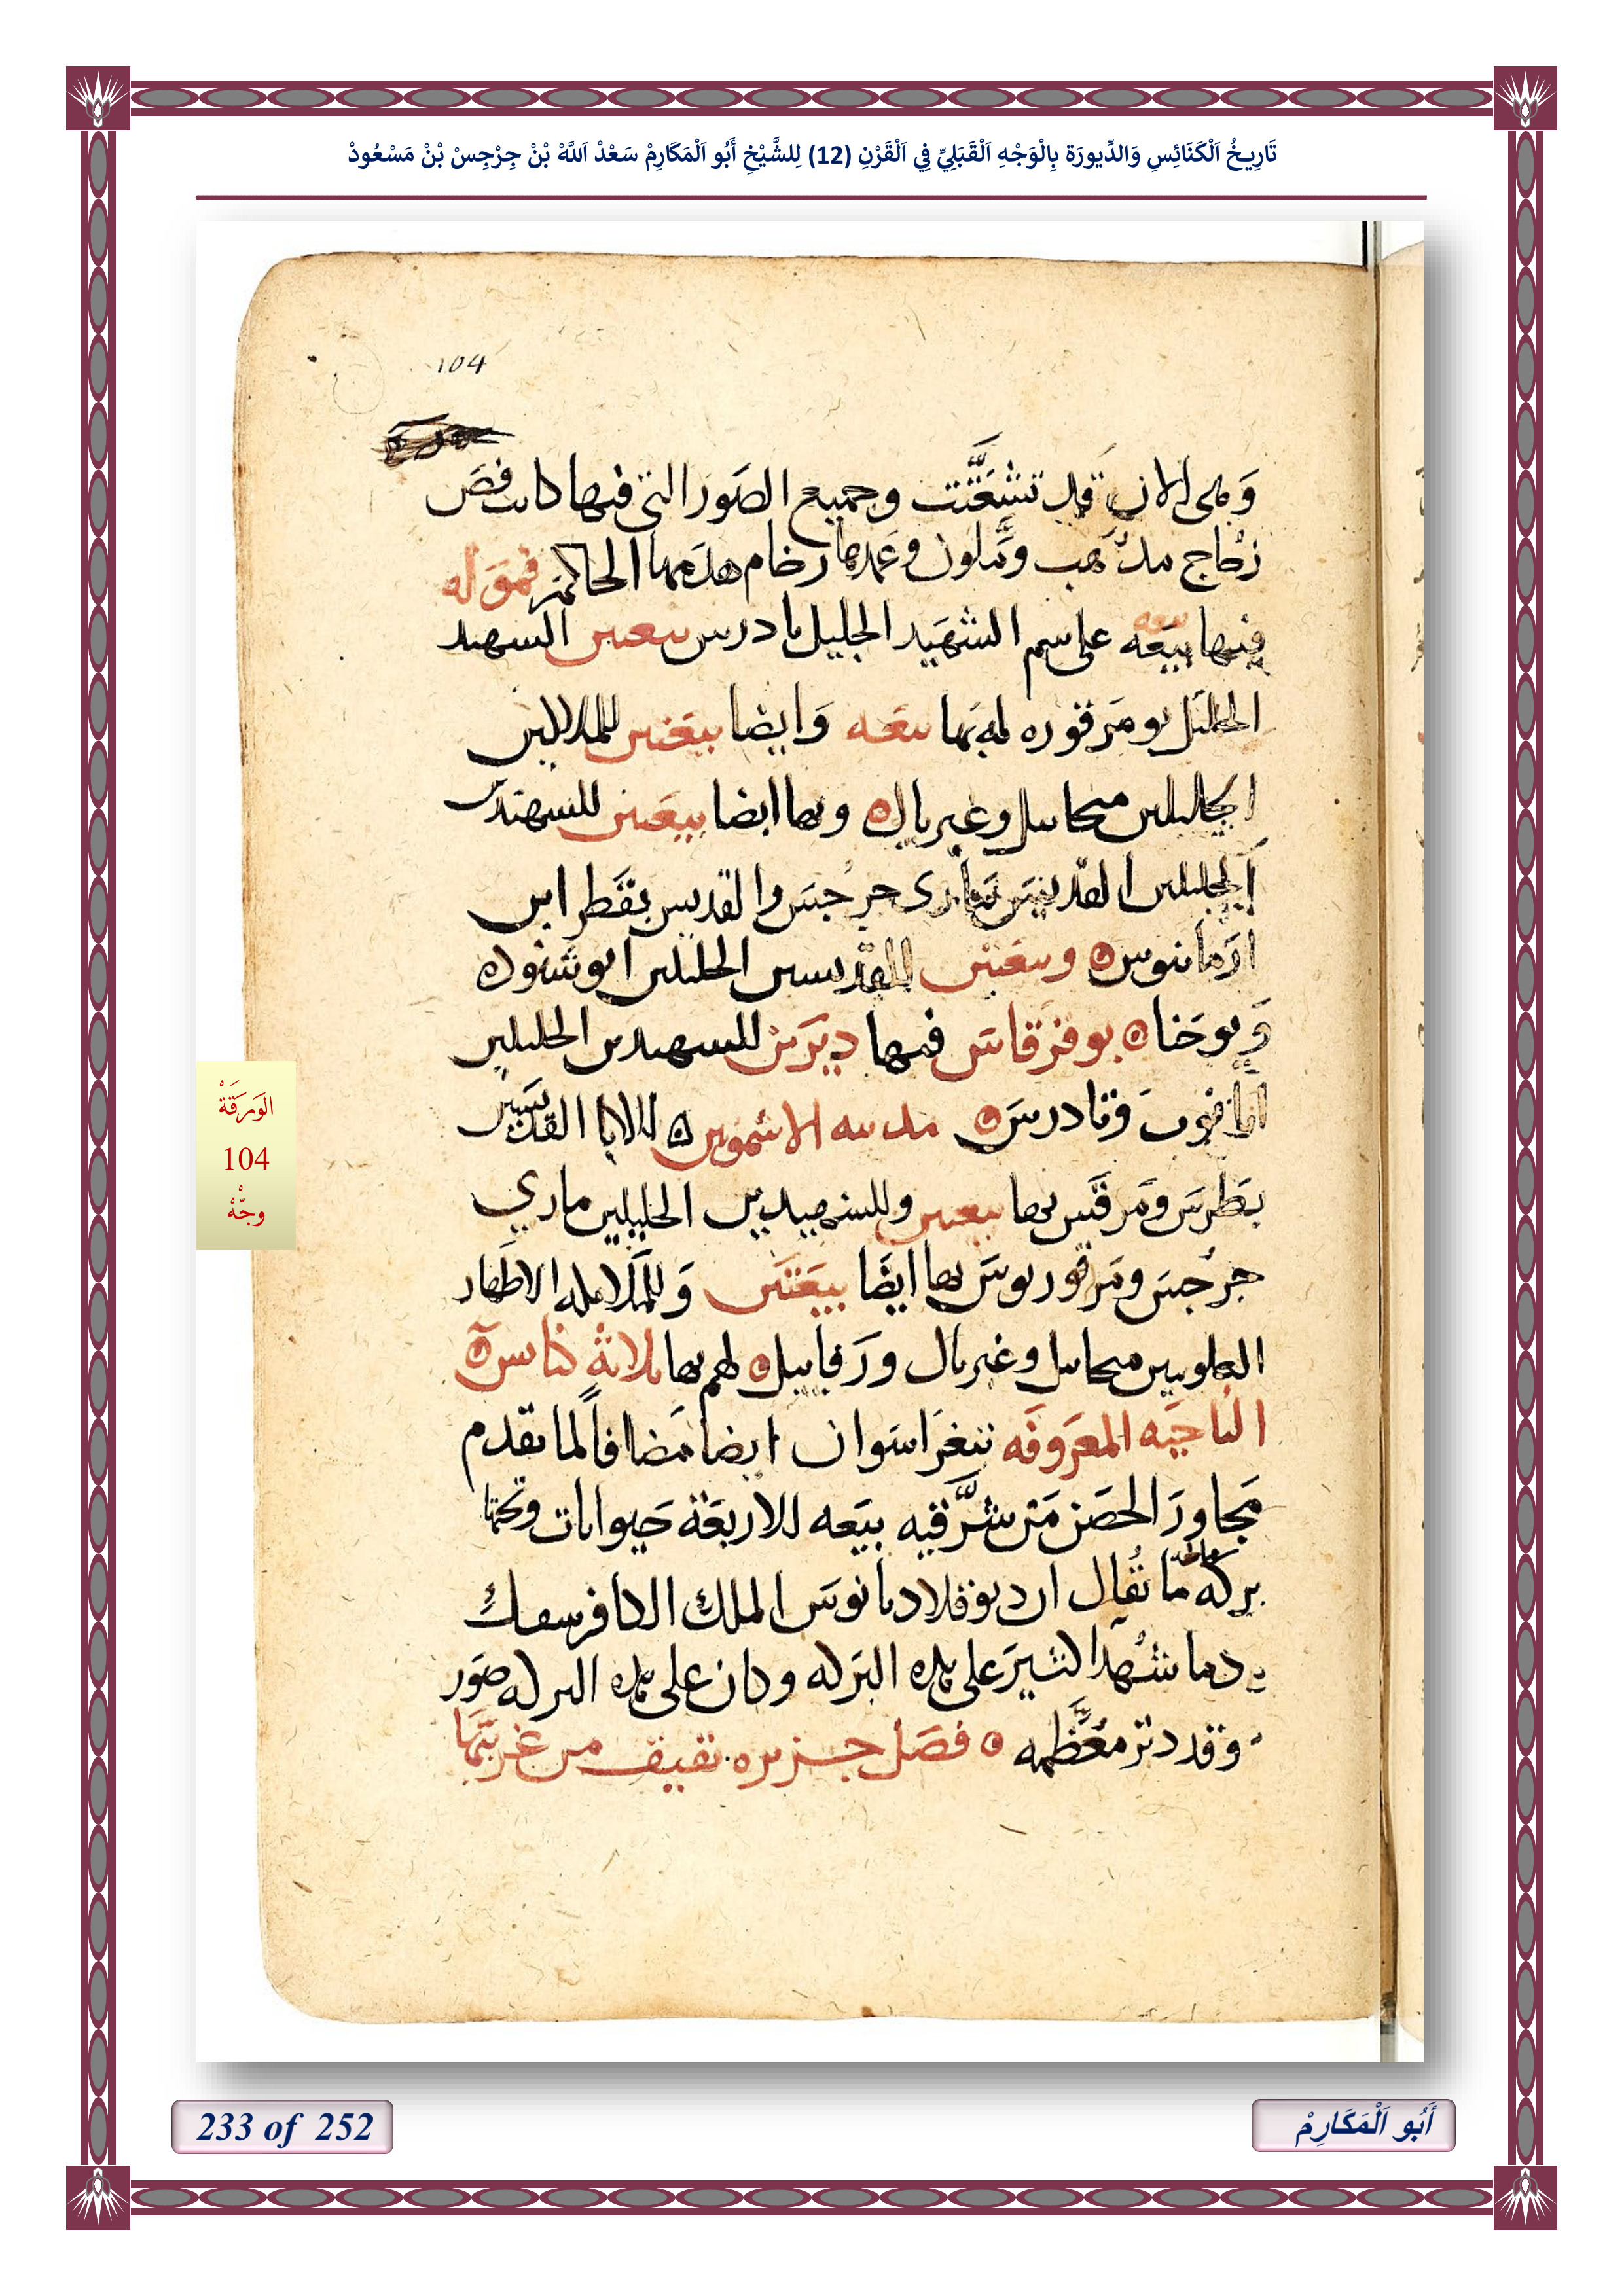 تَارِيخُ اَلْكَنَائِسِ وَالدِّيورَة بِالْوَجْهِ اَلْقَبَلِيِّ فِي اَلْقَرْنِ (12) لِلشَّيْخِ أَبُو اَلْمَكَارِمْ سَعْدْ اَللَّهْ بْنْ جِرْجِسْ بْنْ مَسْعُودْ
104
وَهى الان قد تشعَّثت وجميع الصَور التى فيها كانت فصَ
زجاج مذهب وملون وعمدها رخام هدمها الحاكم قموله
فيها بيَعه على اسم الشهَيد الجليل تادرس بيعتين الشهيد
الجليَل بو مَرقوره له بَها بيعَه وَايضا بيعَتين للملاكين
الجليلين ميخاييل وغبريال وبها ايضا بيعَتين للشهيدَين
الجليلين القديسَين مارى جرجسَ والقديس بقَطر ابن
ارَمانيوس وبيعَتين للقديسين الجليلين ابو شنوده
وَيوحَنا بو فزقاسَ فيها ديرَين للشهيدين الجليلين
اباخوب وتادرسَ مدينه الاشمونين للابا القديسَين
بطَرسَ ومَرقسَ بها بيعتين وللشهيدين الجليلين ماري
جرجسَ ومَرقوريوسَ بها ايضَا بيَعَتين وَللملايكه الاطَهار
العلويين ميخاييل وغبريال ورَفاييل لهم بها ثلاثة كنايس
الناحيَه المعرَوفَه بثغرَ اسَوان ايضا مَضافاً لما تقدم
مَجاورَ الحصَن مَن شرَّقيه بيَعه للاربعَة حَيوانات وتحتها
بركه ما يقال ان ديوقلاديانوسَ الملك الكافر سفك
دما شهدا كثيرَ على هذه البرَكه وكان على هذه البركه صوَر
وقد دثر معَظَّمه فصَل جزيره نقيق من غربيَّها
الوَرَقَةْ
104
وجّهْ
233 of 252
أَبُو اَلْمَكَارِمْ